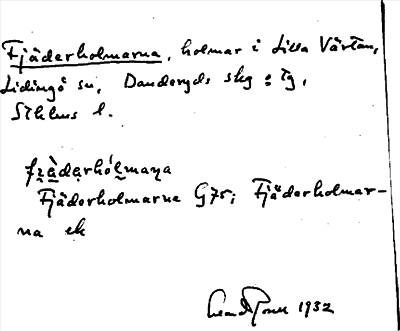 Fjäderholmarna, holmar i Lilla Värtan,
Lidingö sn, Danderyds skg o tg,
Sthlms l.
fjä̀darhólmaṇa
Fjäderholmarne G75; Fjäderholmar-
na ek
1932